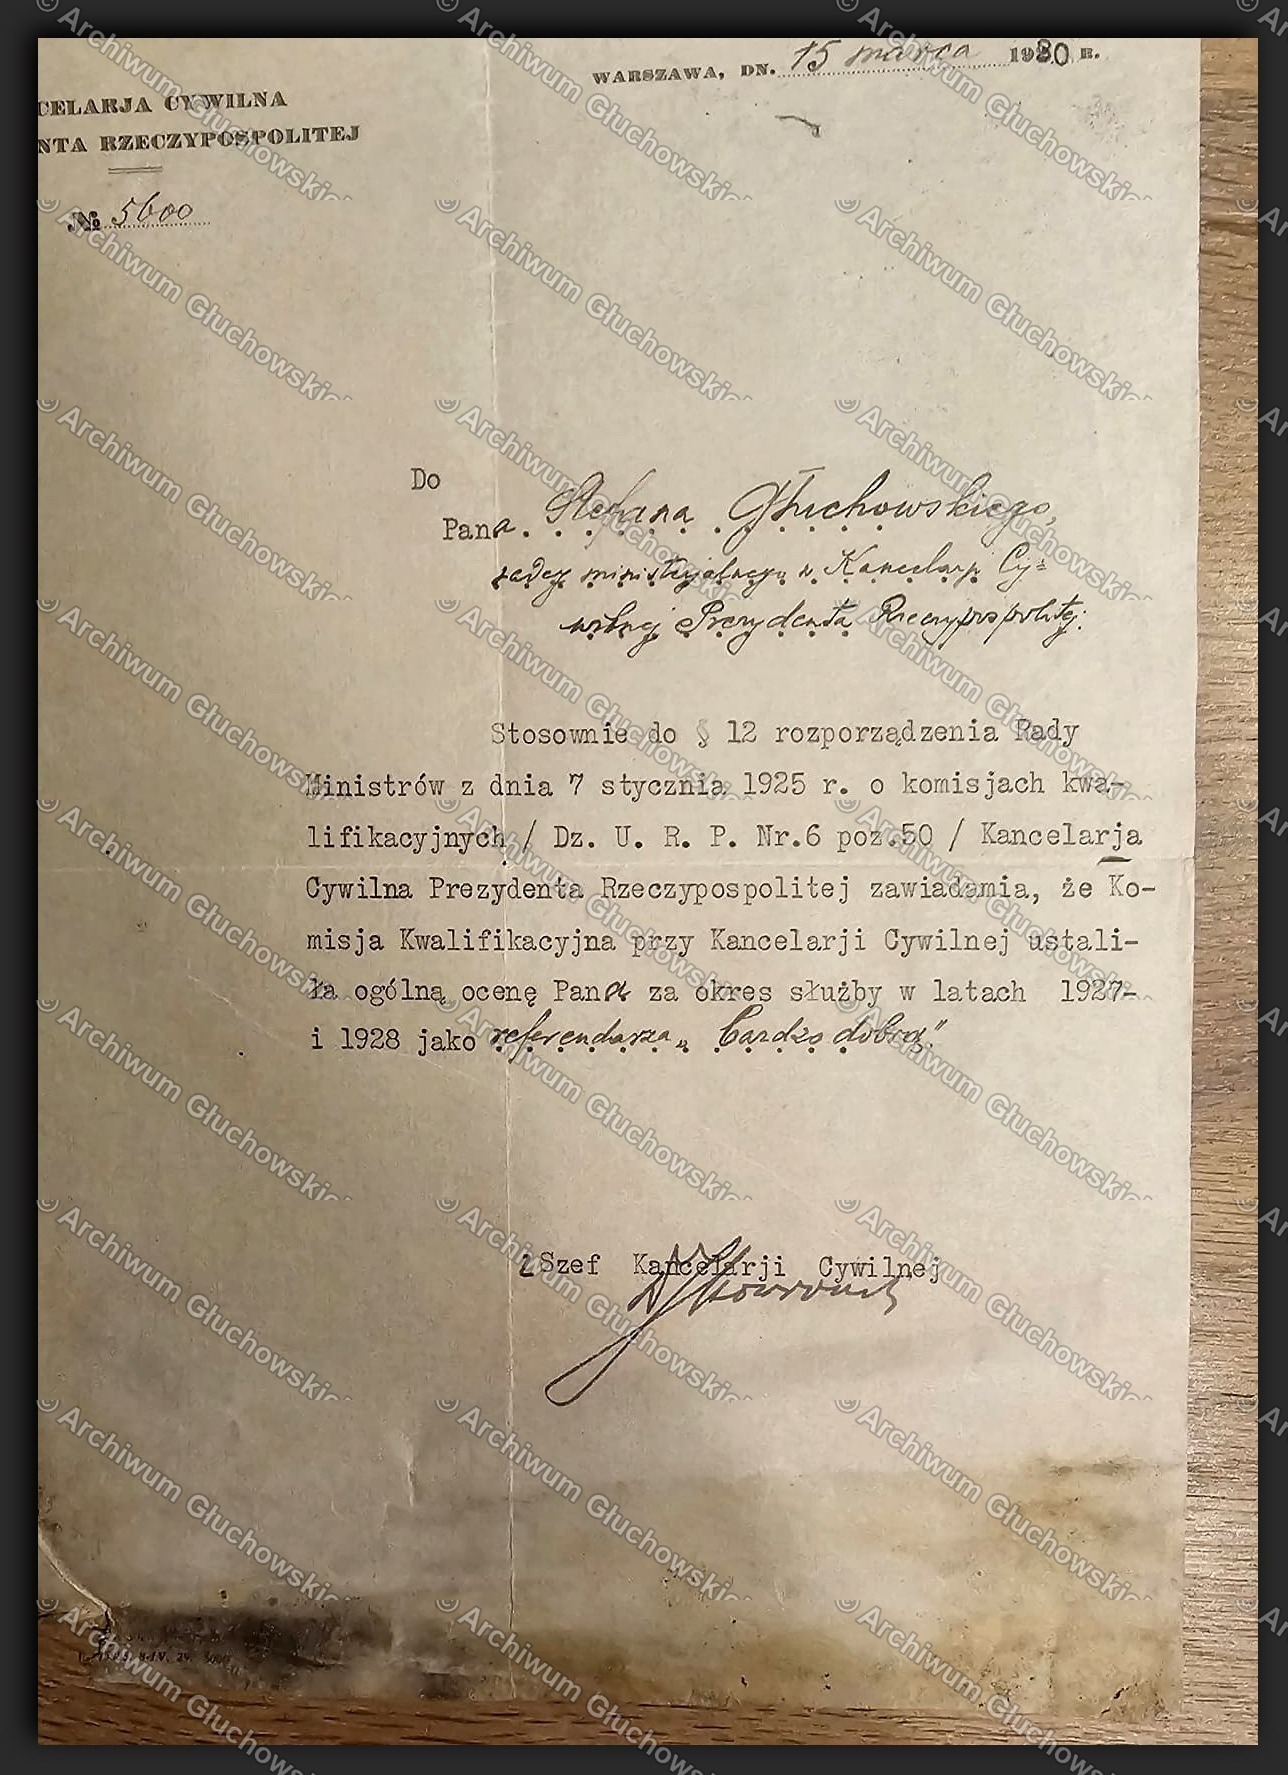 WARSZAWA, DN. 15 marca 1930 R.
CELARJA CYWILNA
NTA RZECZYPOSPOLITEJ
№ 5600
Do
Pana. Stefana Głuchowskiego,
radcy ministerjalnego w Kancelarji Cy=
wilnej Prezydenta Rzeczypospolitej.
Stosownie do § 12 rozporządzenia Rady
Ministrów z dnia 7 stycznia 1925 r. o komisjach kwa-
lifikacyjnych / Dz. U. R. P. Nr.6 poz.50 / Kancelarja
Cywilna Prezydenta Rzeczypospolitej zawiadamia, że Ko-
misja Kwalifikacyjna przy Kancelarji Cywilnej ustali-
ła ogólną ocenę Pana za okres służby w latach 1927-
i 1928 jako referendarza „bardzo dobrą”
Szef Kancelarji Cywilnej
© Archiwum Głuchowskich